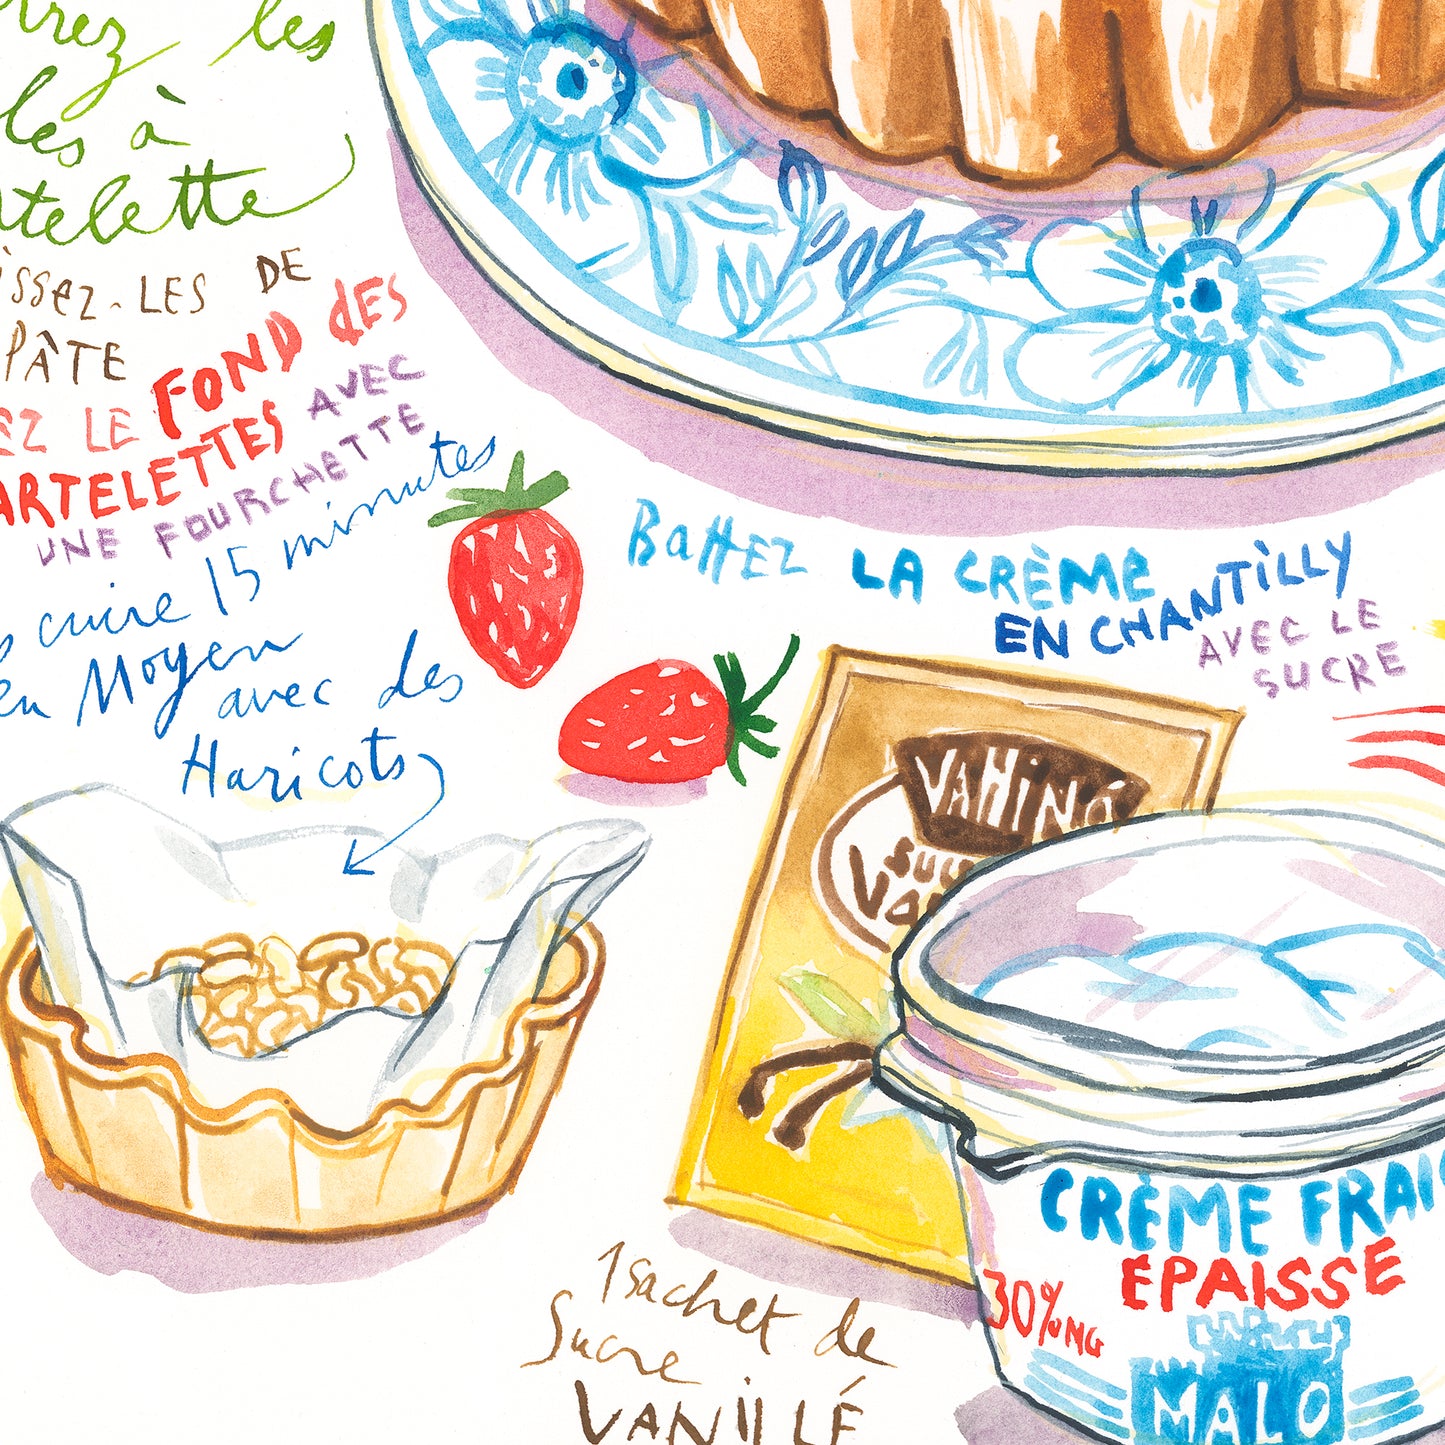 les
les à
telette
issez-les DE
PÂTE
EZ LE FOND dES
ARTELETTES AVEC
UNE FOURCHETTE
cuire 15 minutes
en Moyen
avec des
Haricots
BattEZ LA CRÈME
EN CHANTiLLY
AVEC LE
SUCRE
VAHiNÉ
SUC
VA
CRÈME FRAI
ÉPAISSE
30% MG
MALO
1 sachet de
Sucre
VANiLLÉ